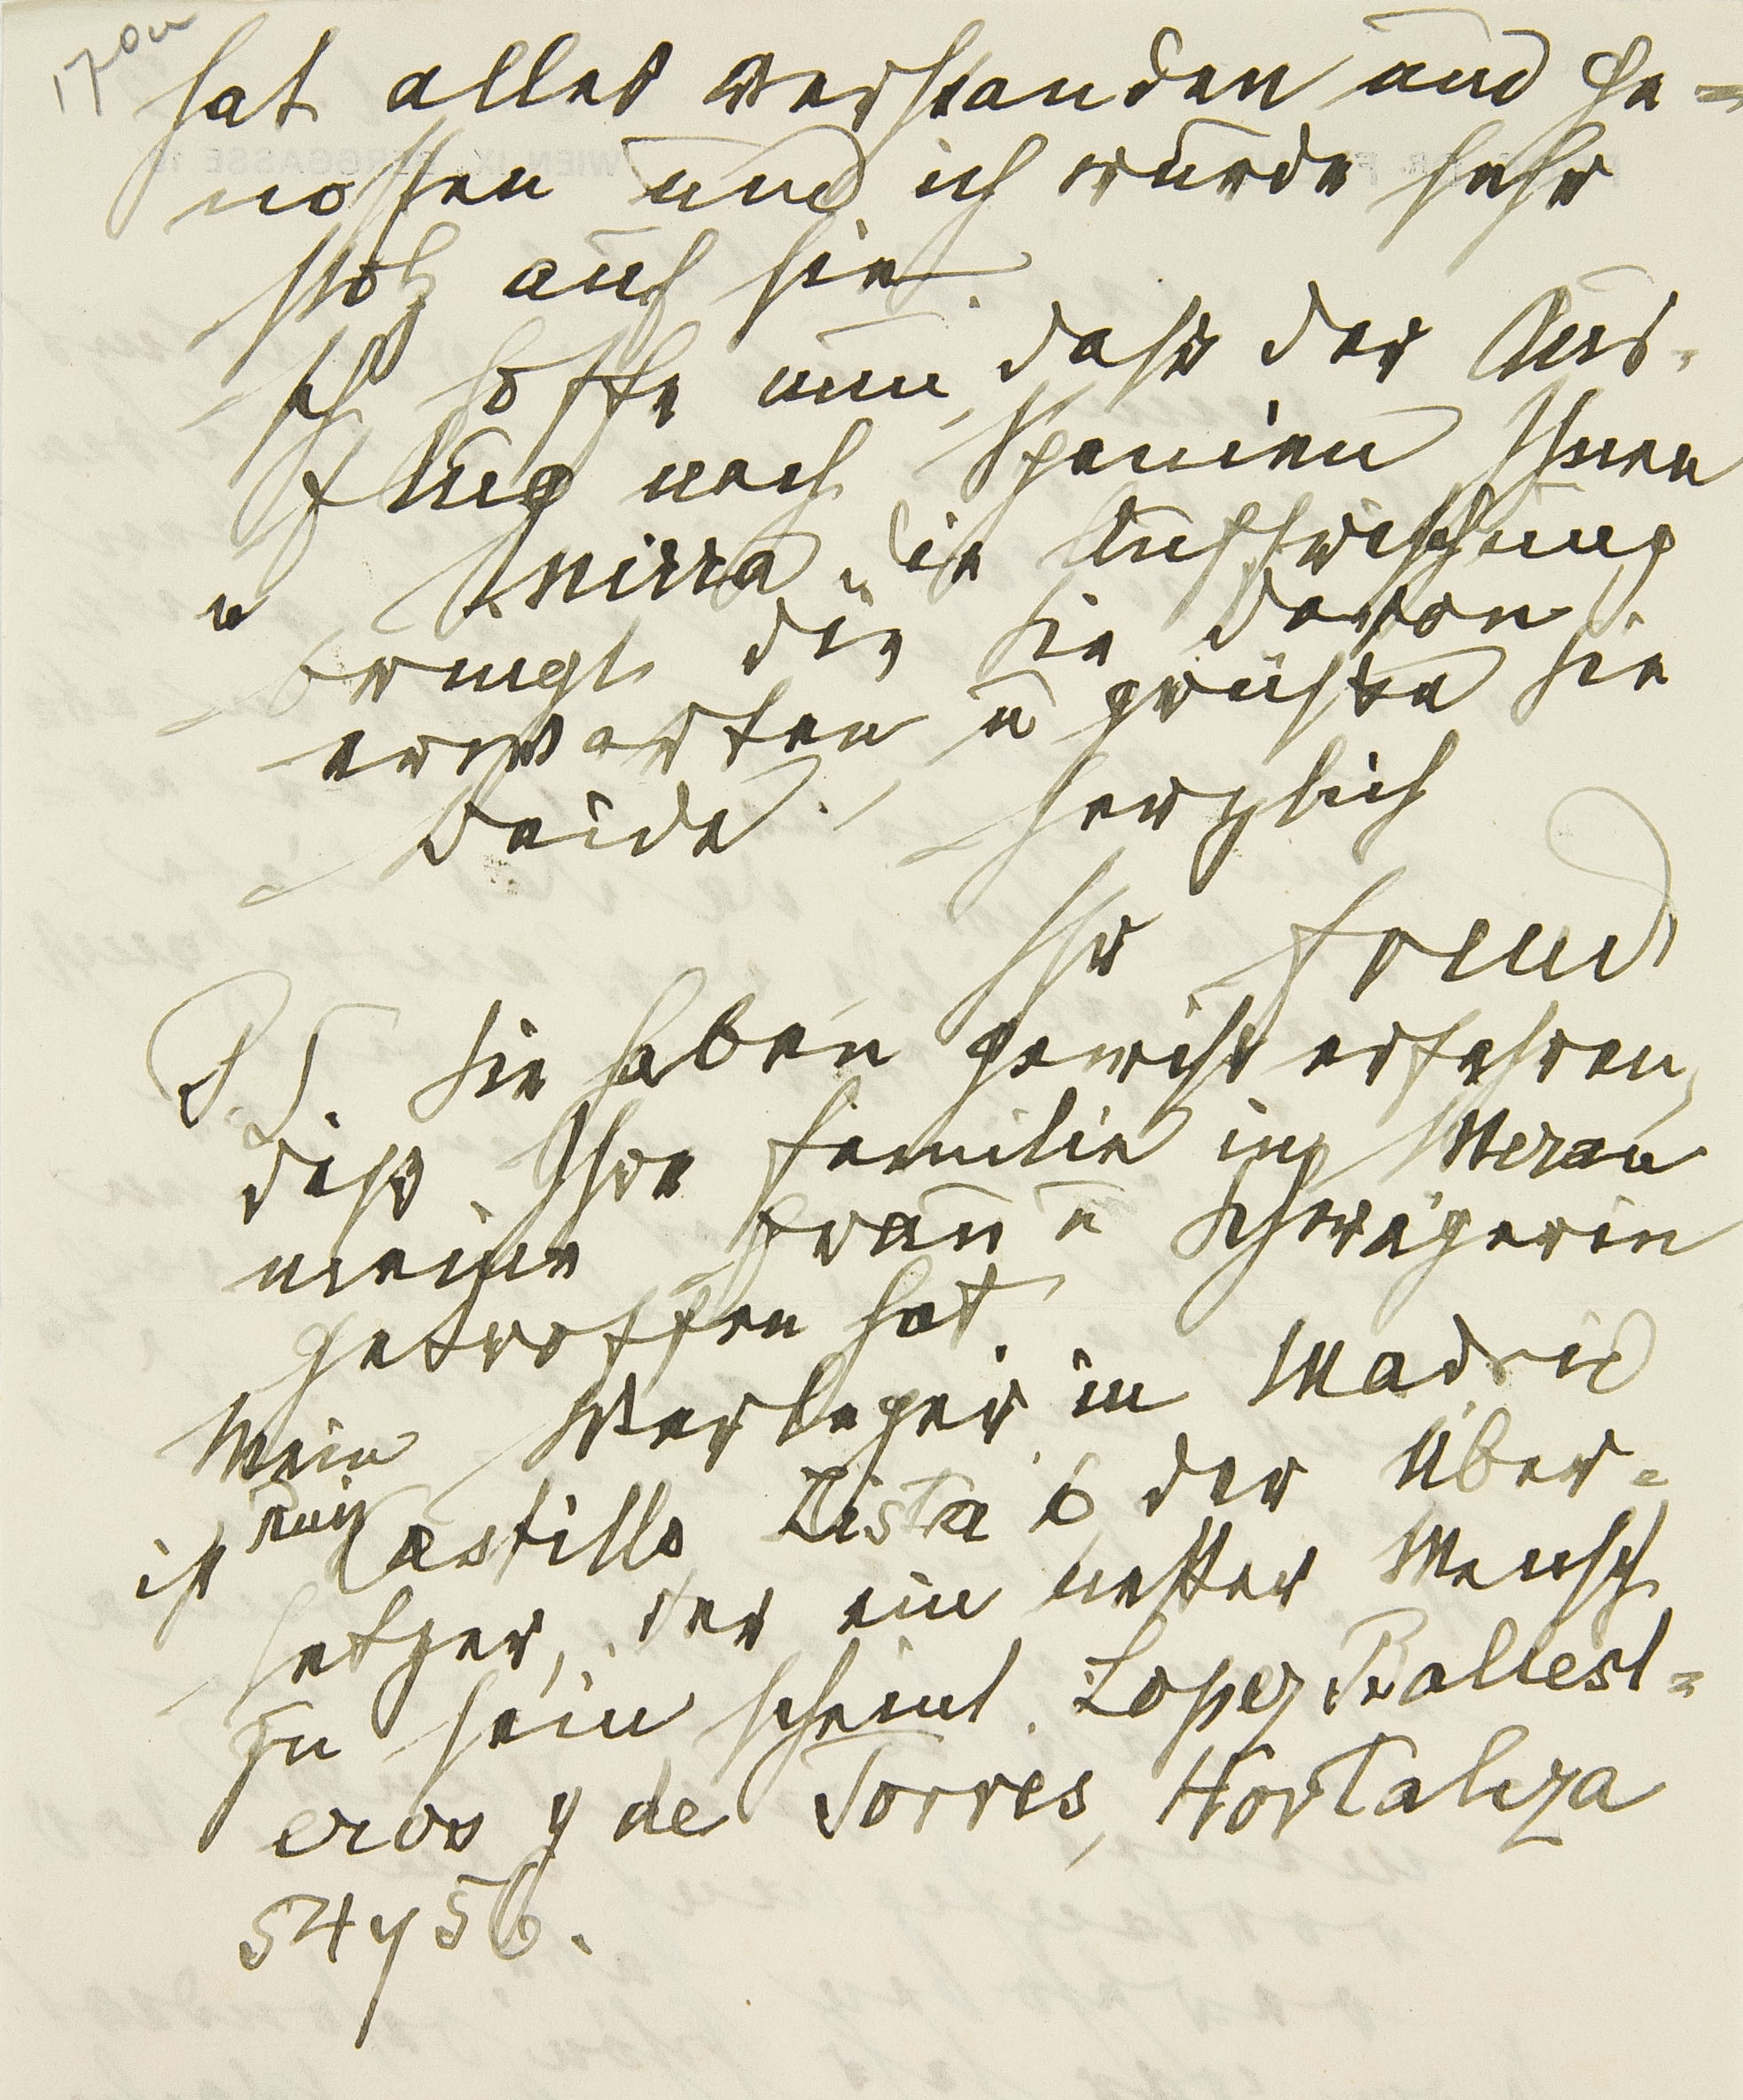 hat alles verstanden und ge=
nossen und ich wurde sehr
stolz auf sie.
Ich hoffe nun, daß der Aus-
flug nach Spanien Ihnen
u Mirra die Auffrischung
bringt, die Sie davon
erwarten u grüße Sie
beide herzlich
Ihr Freud
PS. Sie haben gewiß erfahren,
daß Ihre Familie in Meran
meine Frau u Schwägerin
getroffen hat.
Mein Verleger in Madrid
ist Ruiz Castillo Lista 6, der Über=
setzer, der ein netter Mensch
zu sein scheint. Lopez Ballest=
eros y de Torres, Hortaliza
54 y 56.